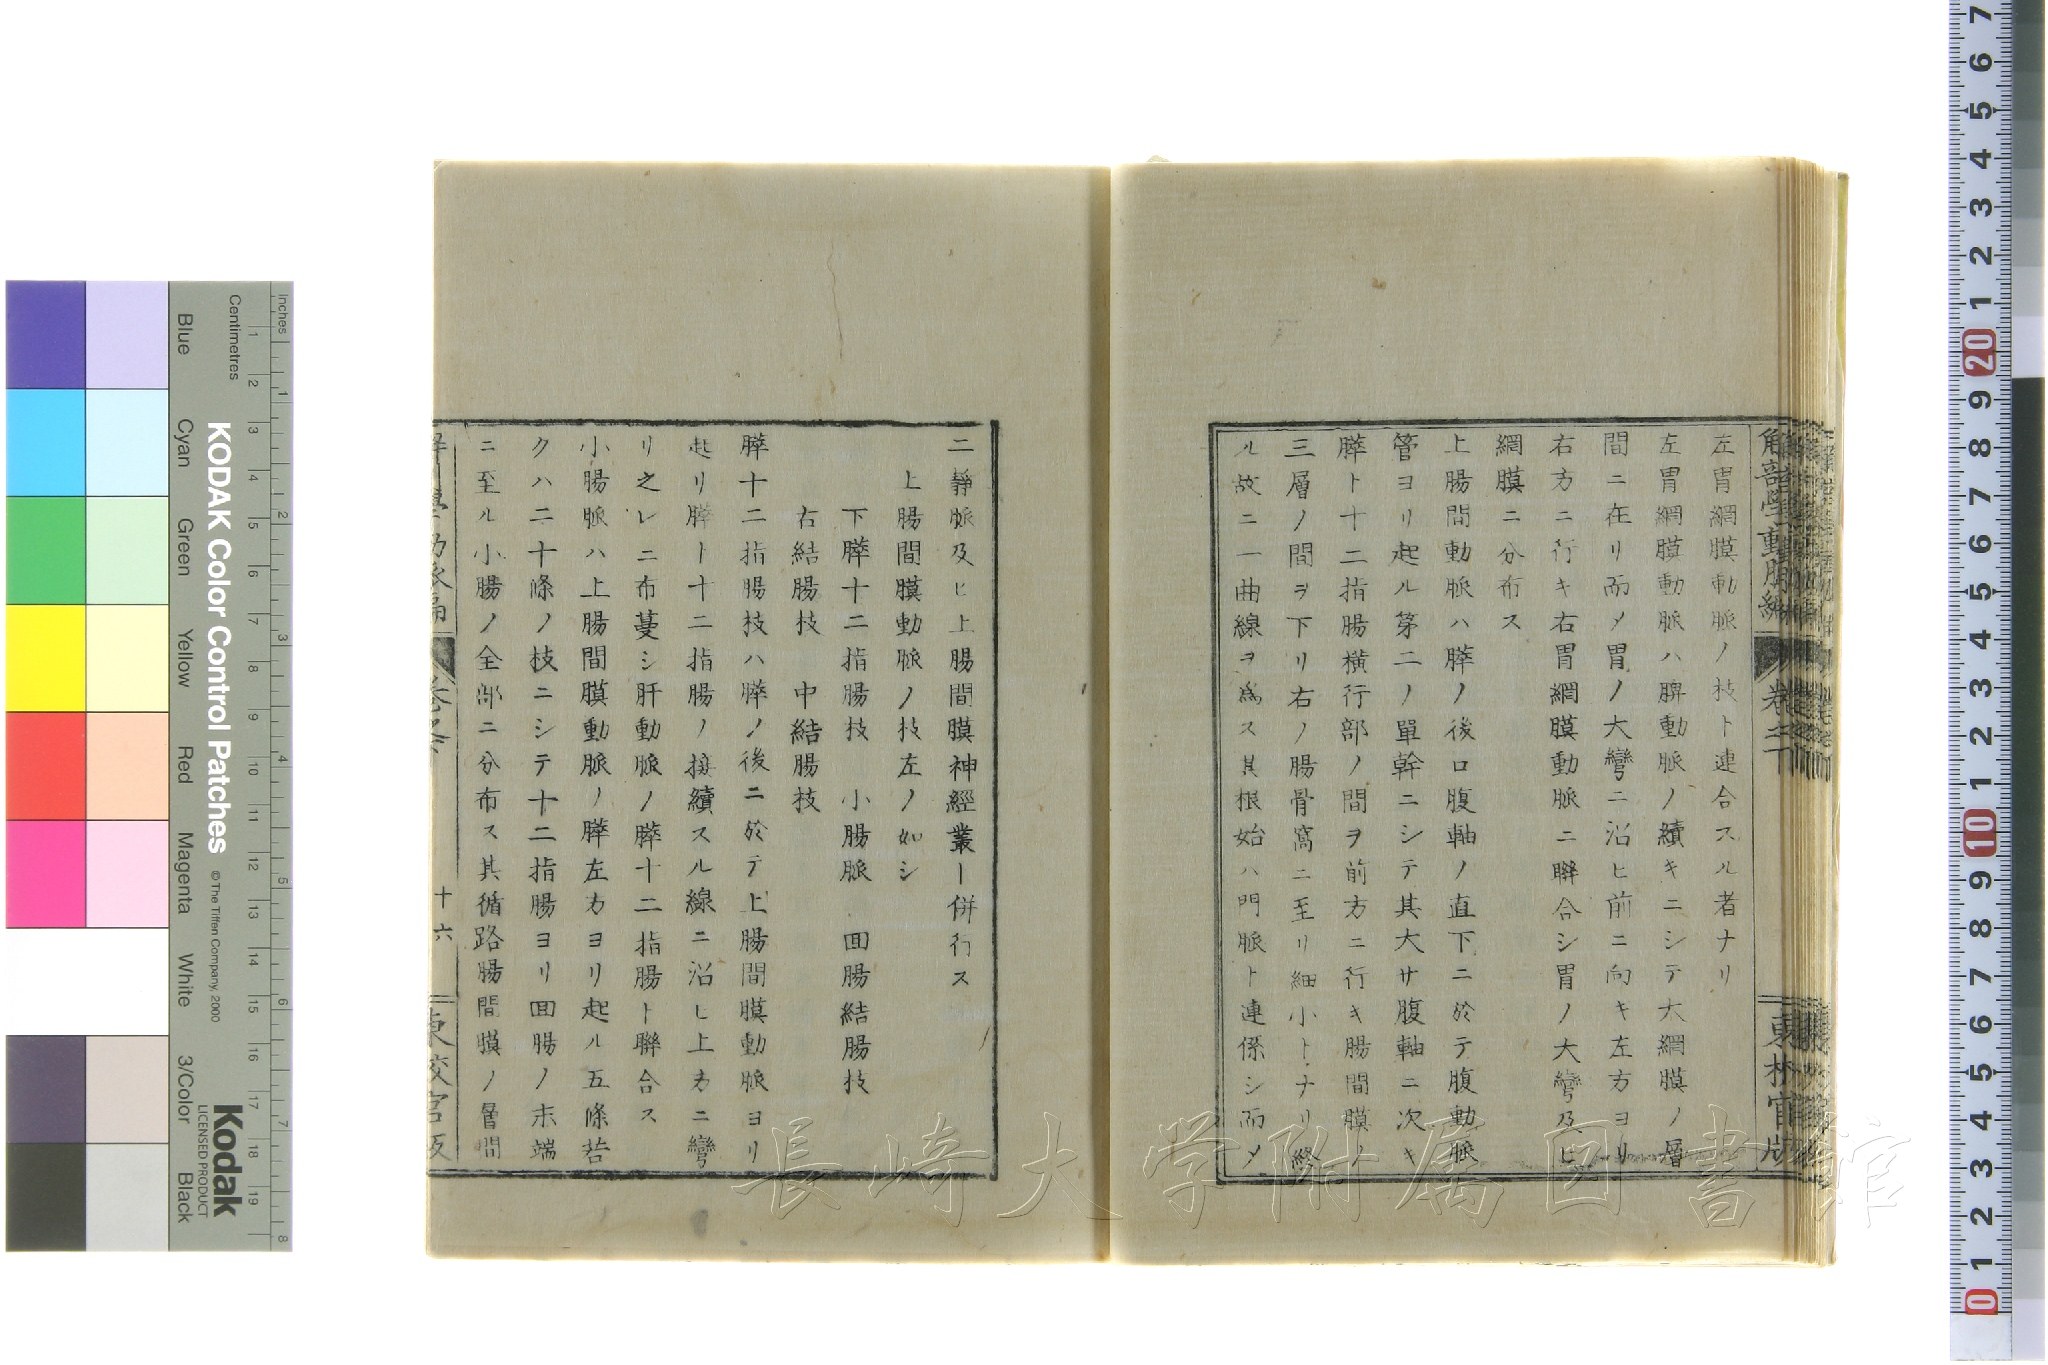 左胃網膜動脈ノ枝ト連合スル者ナリ
左胃網膜動脈ハ脾動脈ノ續キニシテ大網膜ノ層
間ニ在リ而メ胃ノ大彎ニ沿ヒ前ニ向キ左方ヨリ
右方ニ行キ右胃網膜動脈ニ聯合シ胃ノ大彎及ヒ
網膜ニ分布ス
上腸間動脈ハ膵ノ後口腹軸ノ直下ニ於テ腹動脈
管ヨリ起ル第二ノ單幹ニシテ其大サ腹軸ニ次キ
膵ト十二指腸横行部ノ間ヲ前方ニ行キ腸間膜ノ
三層ノ間ヲ下リ右ノ腸骨窩ニ至リ細小トナリ終
ル故ニ一曲線ヲ為ス其根始ハ門脈ト連係シ而メ
二靜脈及ヒ上腸間膜神經叢ト併行ス
上腸間膜動脈ノ枝左ノ如シ
下膵十二指腸技 小腸脈 回腸結腸技
右結腸技 中結腸技
膵十二指腸技ハ膵ノ後ニ於テ上腸間膜動脈ヨリ
起リ膵ト十二指腸ノ接續スル線ニ沿ヒ上方ニ彎
リ之レニ布蔓シ肝動脈ノ膵十二指腸ト聯合ス
小腸脈ハ上腸間膜動脈ノ膵左方ヨリ起ル五條若
クハ二十條ノ枝ニシテ十二指腸ヨリ回腸ノ末端
ニ至ル小腸ノ全部ニ分布ス其循路腸間膜ノ層間
十六
長崎大学附属図書館
KODAK Color Control Patches
© The Tiffen Company, 2000
Kodak
LICENSED PRODUCT
Centimetres
Inches
Blue
Cyan
Green
Yellow
Red
Magenta
White
3/Color
Black